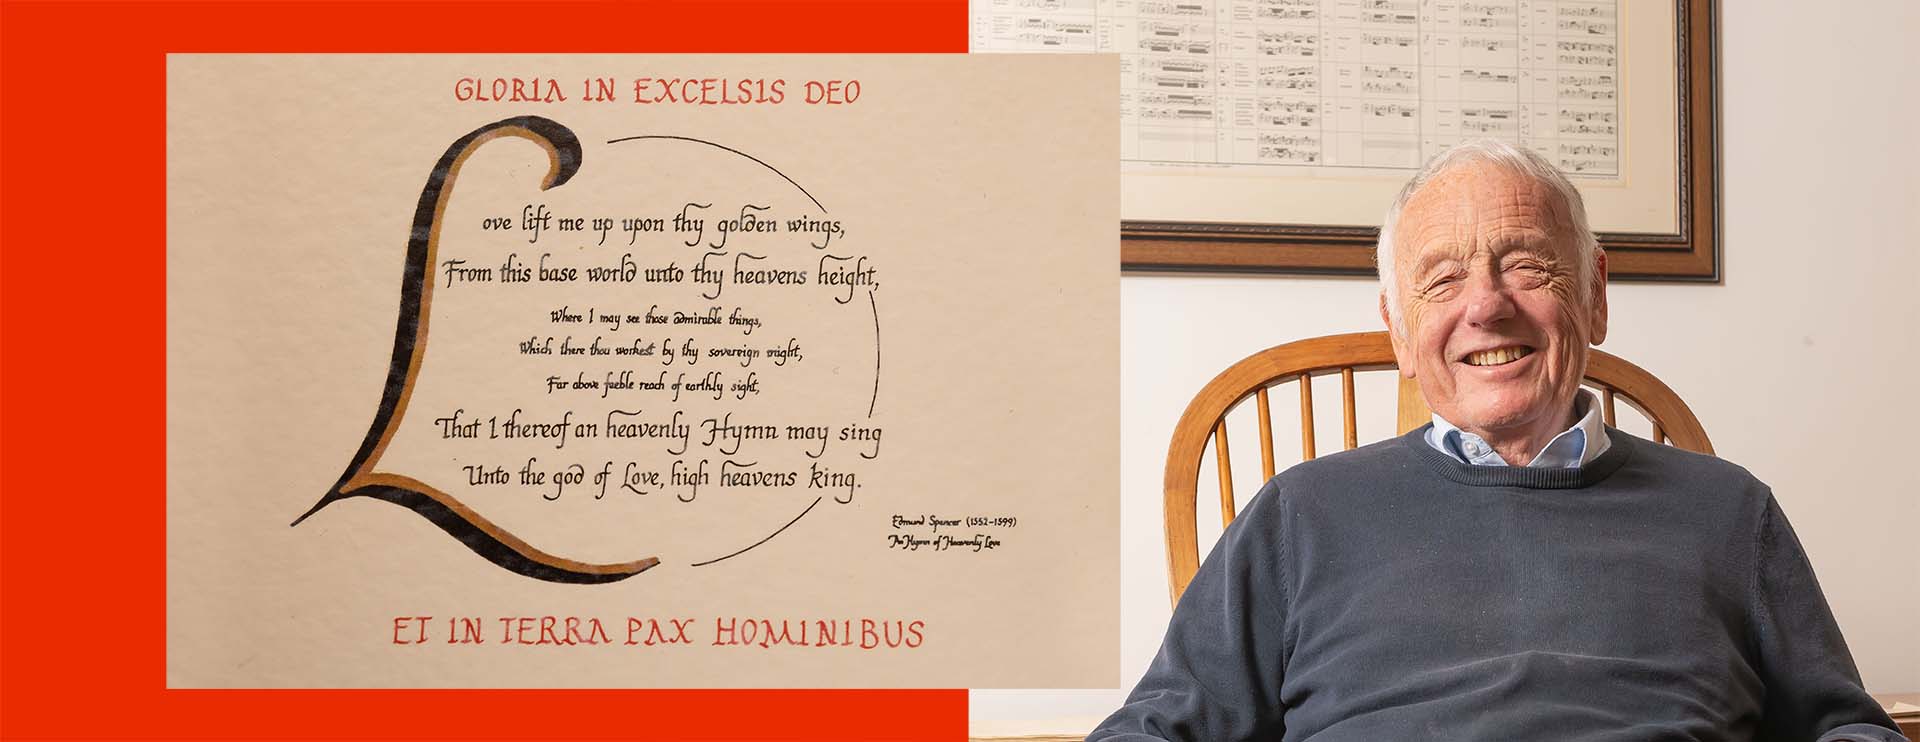 GLORIA IN EXCELSIS DEO
Love lift me up upon thy golden wings,
From this base world unto thy heavens height,
Where I may see those admirable things,
Which there thou workest by thy sovereign might,
Far above feeble reach of earthly sight,
That I thereof an heavenly Hymn may sing
Unto the god of Love, high heavens king.
Edmund Spencer (1552-1599)
An Hymn of Heavenly Love
ET IN TERRA PAX HOMINIBUS